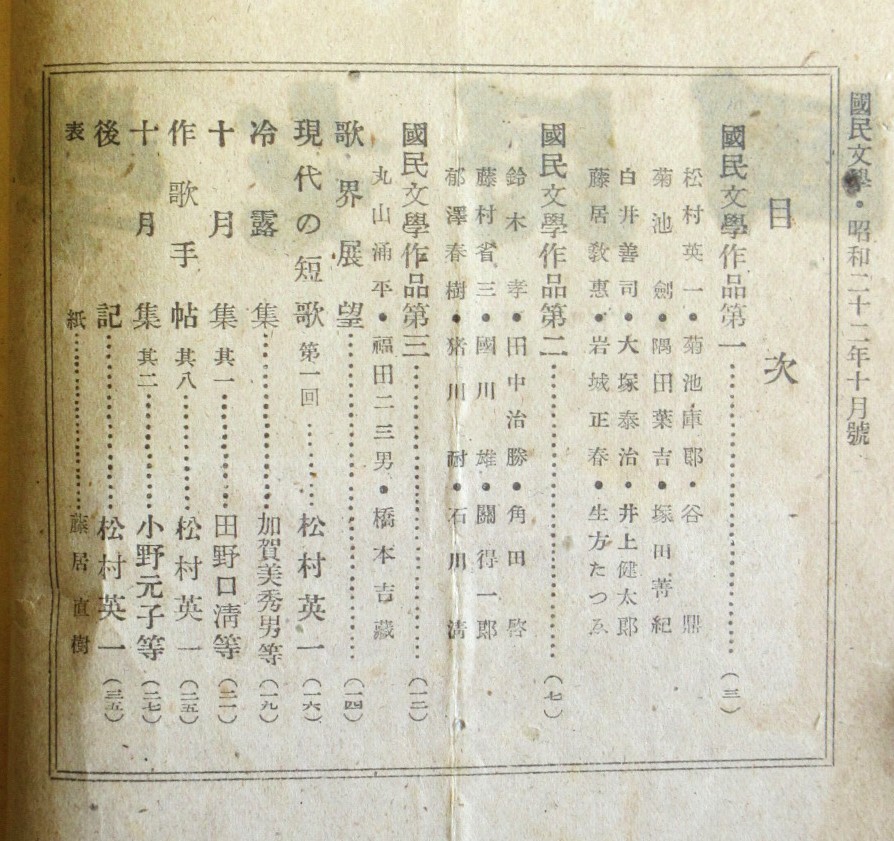 國民文學・昭和二十二年十月號
目次
國民文學作品第一……………………(三)
松村英一・菊池庫郎・谷鼎
菊池劍・隅田葉吉・塚田菁紀
白井善司・大塚泰治・井上健太郎
藤居敎惠・岩城正春・生方たつゑ
國民文學作品第二……………………(七)
鈴木孝・田中治勝・角田啓
藤村省三・國川雄・關得一郎
郁澤春樹・猪川耐・石川淸
國民文學作品第三……………………(一二)
丸山涌平・福田二三男・橋本吉藏
歌界展望……………………(一四)
現代の短歌第一回……松村英一(一六)
冷露集……………加賀美秀男等(一九)
十月集其一………田野口淸等(二一)
作歌手帖其八………松村英一(二五)
十月集其二………小野元子等(二七)
後記……………松村英一(三五)
表紙……………藤居直樹